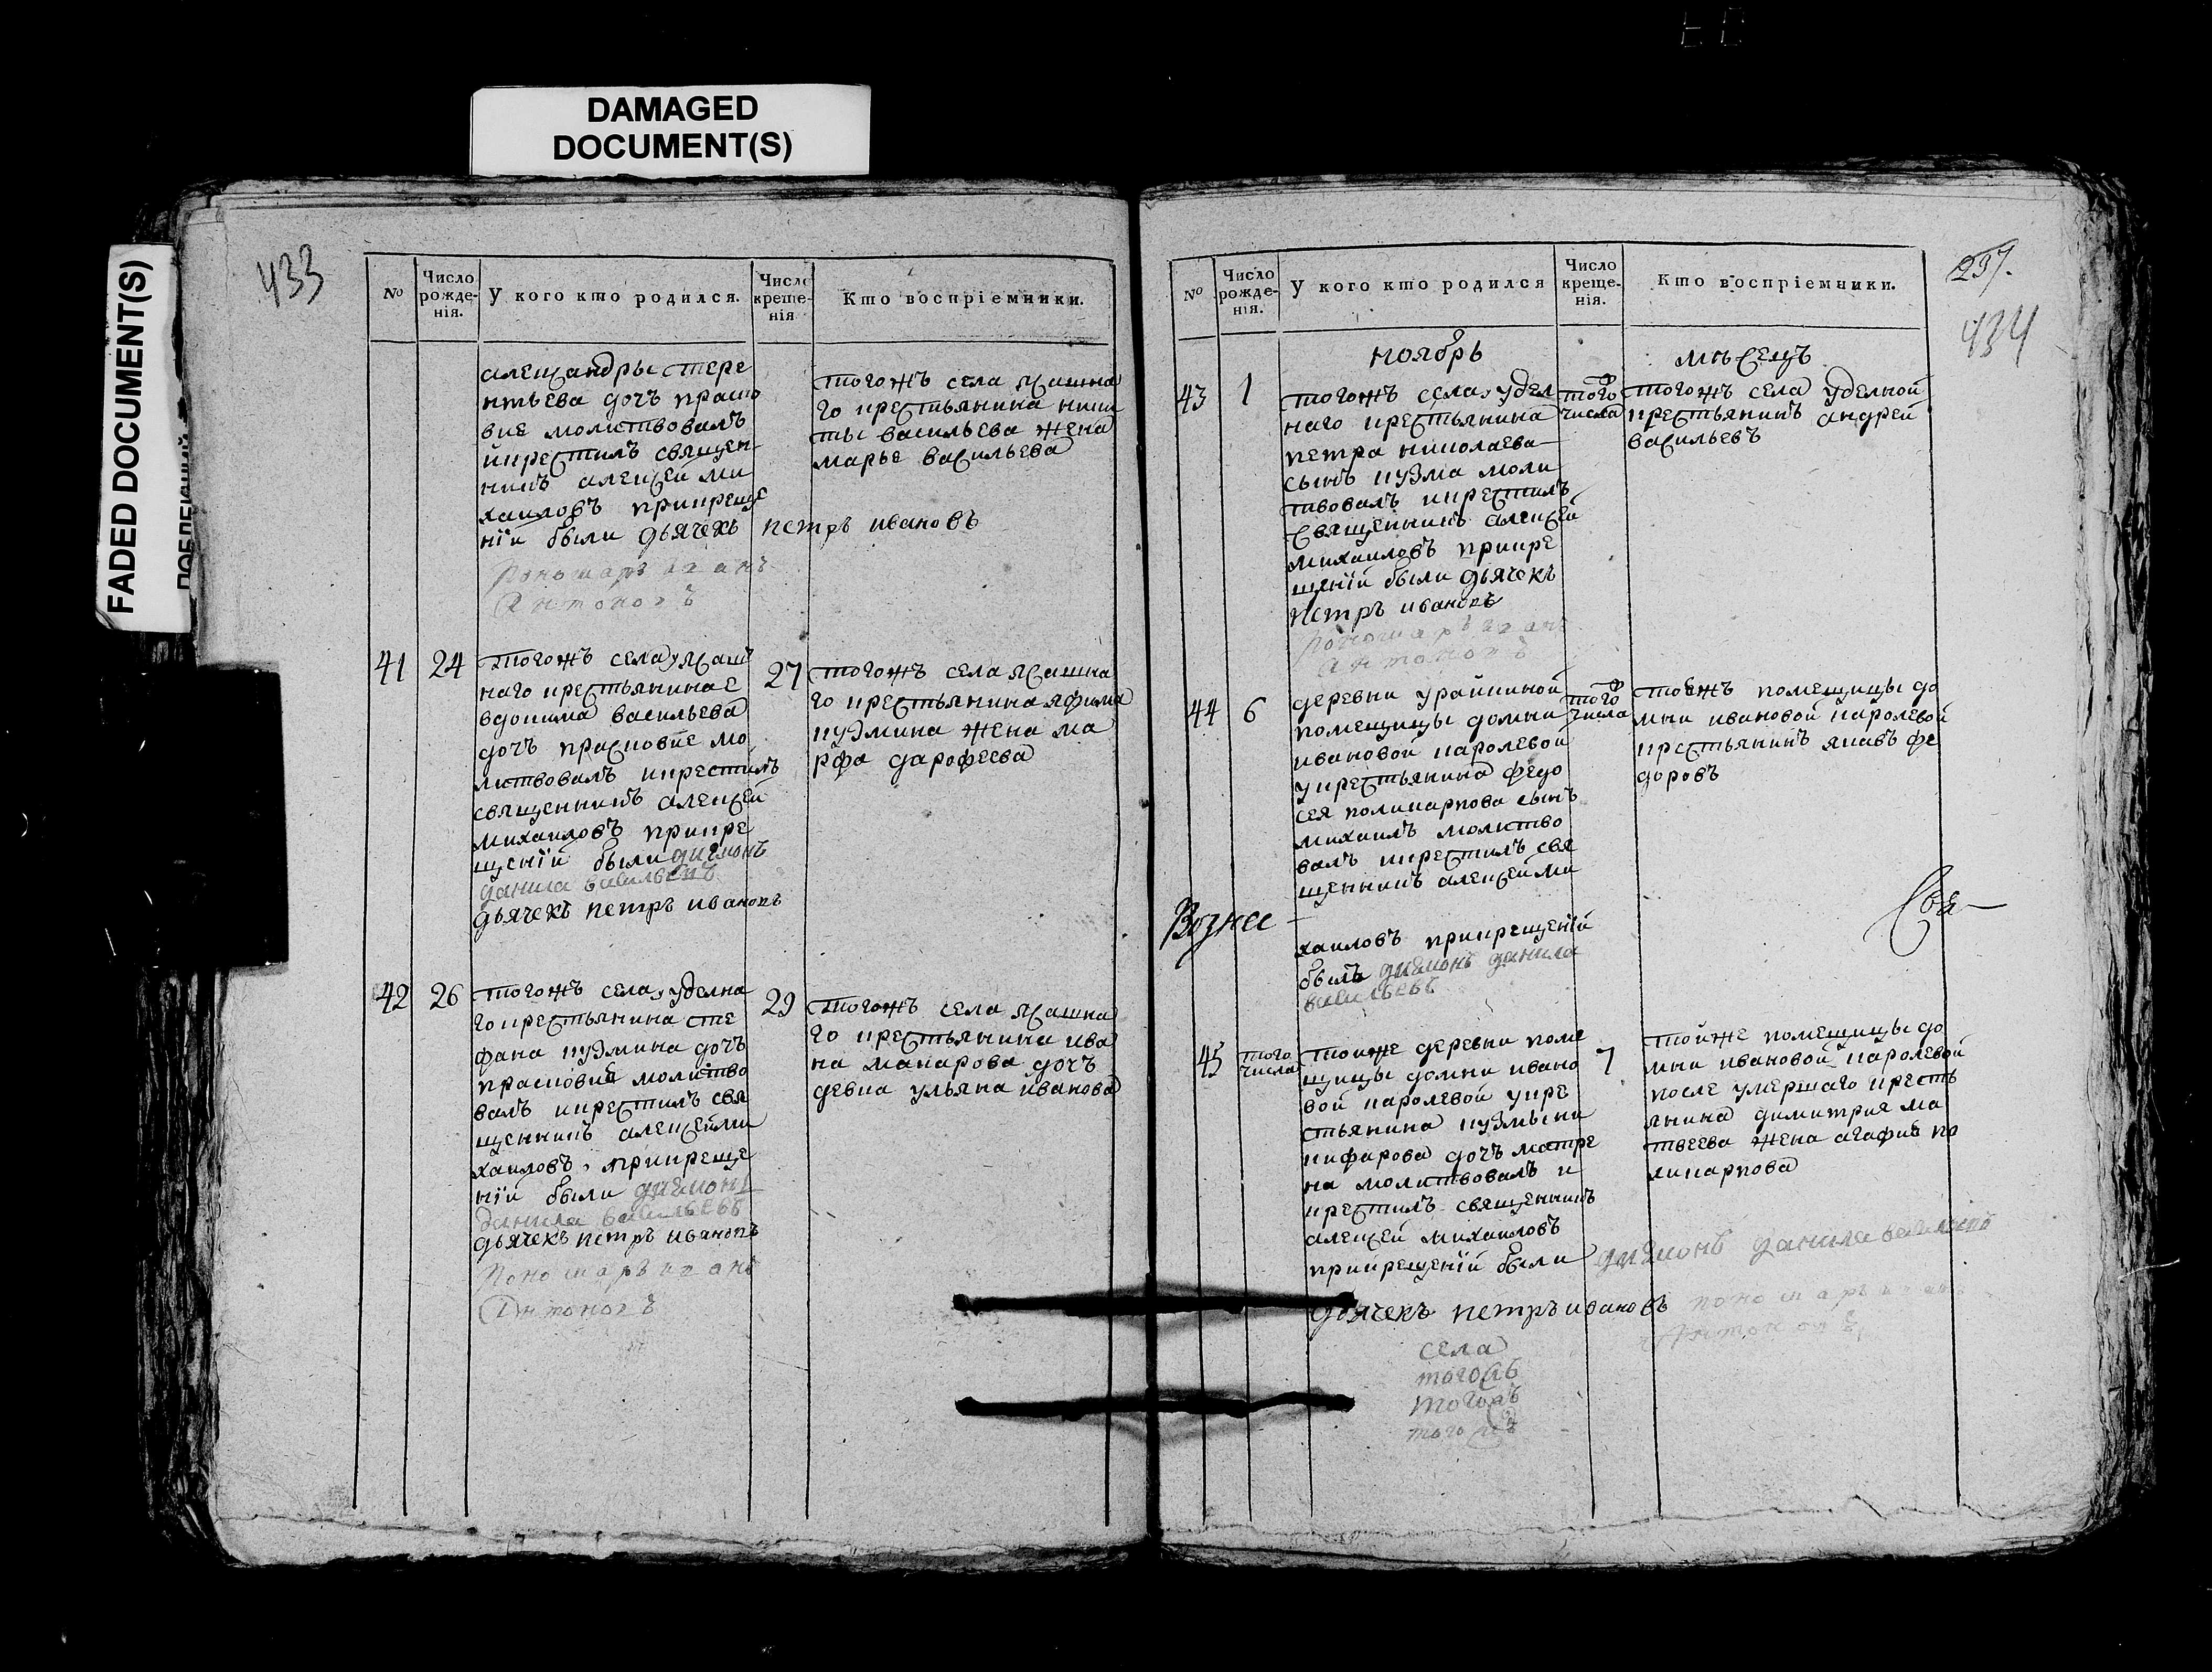 DAMAGED
DOCUMENT(S)
FADED DOCUMENT(S)
433
№
Число рожде-нія.
У кого кто родился.
Число креще-нія
Кто воспріемники.
александры стере
нтьева дочь праско
вие молитвовалъ
икрестилъ священ
никъ алексей ми
хаиловъ прикреще
нїи были дьячекъ петръ ивановъ
Пономарь иванъ
Антоновъ
тогожъ села ясашна
го крестьянина ники
ты васильева жена
марье васильева
41
24
тогожъ села ясаш
наго крестьянина е
вдокима васильева
дочь прасковие мо
литвовалъ икрестилъ
священникъ алексей
михаиловъ прикре
щенїи были диаконъ
данила васильевъ
дьячекъ петръ ивановъ
27
тогожъ села ясашна
го крестьянина яфима
кузмина жена ма
рфа дарофеева
42
26
тогожъ села уделна
го крестьянина сте
фана кузмина дочь
прасковиа молитво
валъ икрестилъ свя
щенникъ алексей ми
хаиловъ прикреще
нїи были диаконъ
данила васильевъ
дьячекъ петръ ивановъ
Пономарь иванъ
Антоновъ
29
тогожъ села ясашна
го крестьянина ива
на макарова дочь
девка ульяна иванова
237.
434
№
Число рожде-нія.
У кого кто родился
Число креще-нія.
Кто воспріемники.
ноябрь
мѣсецъ
43
1
тогожъ села удел
наго крестьянина
петра николаева
сынъ кузма моли
твовалъ икрестилъ
священникъ алексей
михаиловъ прикре
щенїи были дьячекъ
петръ ивановъ
Пономарь иванъ
Антоновъ
того
числа
тогожъ села уделной
крестьянинъ андрей
васильевъ
44
6
деревни урайкиной
помещицы домны
ивановой каролевой
укрестьянина федо
сея поликарпова сынъ
михаилъ молитво
валъ икрестилъ свя
щенникъ алексей ми
хаиловъ прикрещенїи
былъ диаконъ данила
васильевъ
того
числа
тоежъ помещицы до
мны ивановой каролевой
крестьянинъ якавъ фе
доровъ
Вознес
Свя
45
того
числа
тойже деревни поме
щицы домны ивано
вой каролевой укре
стьянина кузмы ни
кифарова дочь матре
на молитвовалъ и
крестилъ священникъ
алексей михаиловъ
прикрещенїи были диаконъ данила васильевъ
дьячекъ петръ ивановъ пономарь иванъ
Антоновъ
7
тойже помещицы до
мны ивановой каролевой
после умершаго кресть
янина димитрия ма
твеева жена агафиа по
ликарпова
села
тогожъ
тогожъ
тогожъ